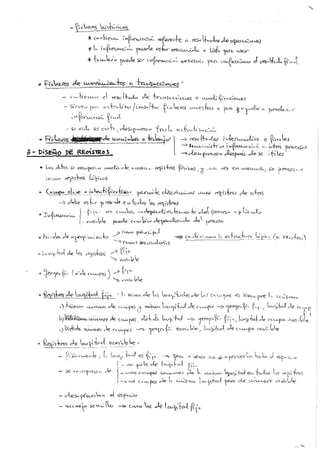 - Ficheros históricos
* contienen información referente a resultados de operaciones
* la información puede estar resumida o lista para usar
* también puede ser información necesaria para confeccionar el resultado final
- Ficheros de movimientos o transacciones
- contienen el resultado de transacciones o modificaciones
- Sirven para actualizar / ficheros maestros o para producir información final
- su vida es corta, desaparecen tras la actualización
- Ficheros de maniobra o trabajo
→ resultados intermedios o finales
→ suministrar información a otros procesos
→ desaparecen después de ser útiles
3 - DISEÑO DE REGISTROS
* Los datos se recuperan registros físicos, y una vez en memoria, se procesan como registros lógicos
* Campo clave o identificativo: permite diferenciar unos registros de otros
→ debe estar presente en todos los registros
* Información
fija: no cambia independientemente del proceso
variable: puede cambiar dependiendo del proceso
* Niveles de agrupamiento
→ campo principal
→ campos secundarios
→ condicionan la estructura lógica
* Longitud de los registros
→ fija
→ variable
* Geografía (nº de campos)
→ fija
→ variable
* Registros de longitud fija - la suma de las longitudes de los campos es siempre la misma
a) Mismo número de campos y misma longitud del campo → geografía fija, longitud de campo fija
b) número de campos, distinta longitud → geografía fija, longitud de campo variable
c) Distinto número de campos → geografía variable, longitud de campo variable
* Registros de longitud variable -
- Físicamente, la longitud es fija → pero a veces no se aprovecha todo el espacio
- se componen de
- una parte de longitud fija
- unos campos comunes de la misma longitud en todos los registros
- unos campos de la misma longitud pero de número variable
- desaprovechan el espacio
- manejo sencillo → como los de longitud fija